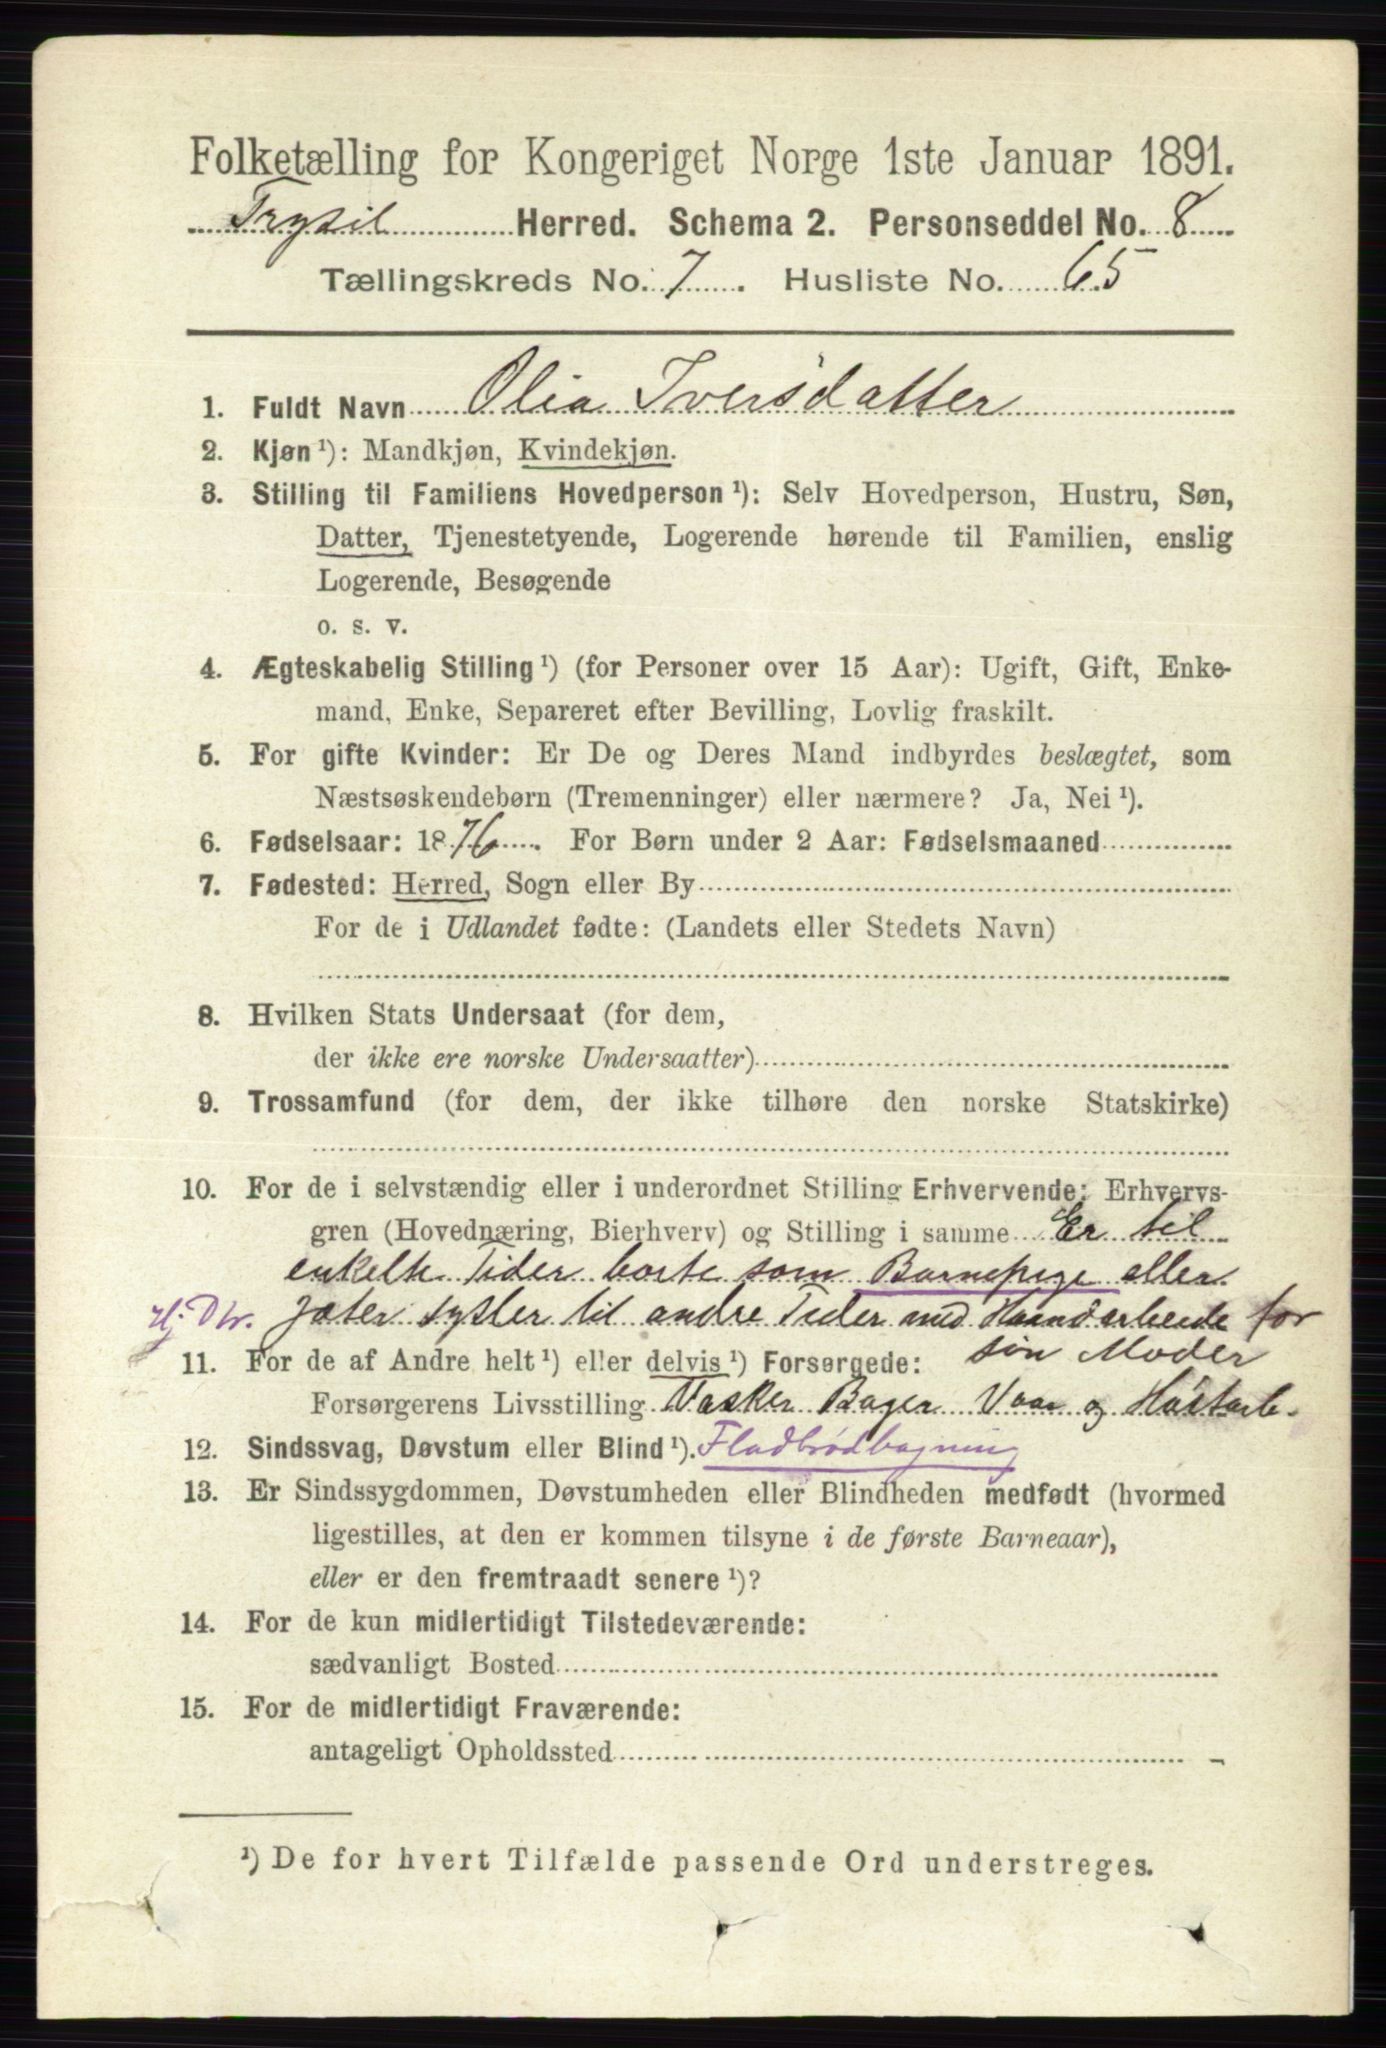 Folketælling for Kongeriget Norge 1ste Januar 1891.
Trysil Herred. Schema 2. Personseddel No. 8
Tællingskreds No. 7. Husliste No. 65
1. Fuldt Navn Olia Iversdatter
2. Kjøn ¹): Mandkjøn, Kvindekjøn.
3. Stilling til Familiens Hovedperson ¹): Selv Hovedperson, Hustru, Søn,
Datter, Tjenestetyende, Logerende hørende til Familien, enslig
Logerende, Besøgende
o. s. v.
4. Ægteskabelig Stilling ¹) (for Personer over 15 Aar): Ugift, Gift, Enke-
mand, Enke, Separeret efter Bevilling, Lovlig fraskilt.
5. For gifte Kvinder: Er De og Deres Mand indbyrdes beslægtet, som
Næstsøskendebørn (Tremenninger) eller nærmere? Ja, Nei ¹).
6. Fødselsaar: 1876. For Børn under 2 Aar: Fødselsmaaned
7. Fødested: Herred, Sogn eller By
For de i Udlandet fødte: (Landets eller Stedets Navn)
8. Hvilken Stats Undersaat (for dem,
der ikke ere norske Undersaatter)
9. Trossamfund (for dem, der ikke tilhøre den norske Statskirke)
10. For de i selvstændig eller i underordnet Stilling Erhvervende: Erhvervs-
gren (Hovednæring, Bierhverv) og Stilling i samme Er til
enkelte Tider borte som Barnepige eller
Hj. Dtr. jæter sysler til andre Tider med Haandarbeide for
sin Moder
11. For de af Andre helt ¹) eller delvis ¹) Forsørgede:
Forsørgerens Livsstilling Vasker Bager Vaar og Høstarb.
12. Sindssvag, Døvstum eller Blind ¹). Fladbrødbagning
13. Er Sindssygdommen, Døvstumheden eller Blindheden medfødt (hvormed
ligestilles, at den er kommen tilsyne i de første Barneaar),
eller er den fremtraadt senere ¹)?
14. For de kun midlertidigt Tilstedeværende:
sædvanligt Bosted
15. For de midlertidigt Fraværende:
antageligt Opholdssted
¹) De for hvert Tilfælde passende Ord understreges.